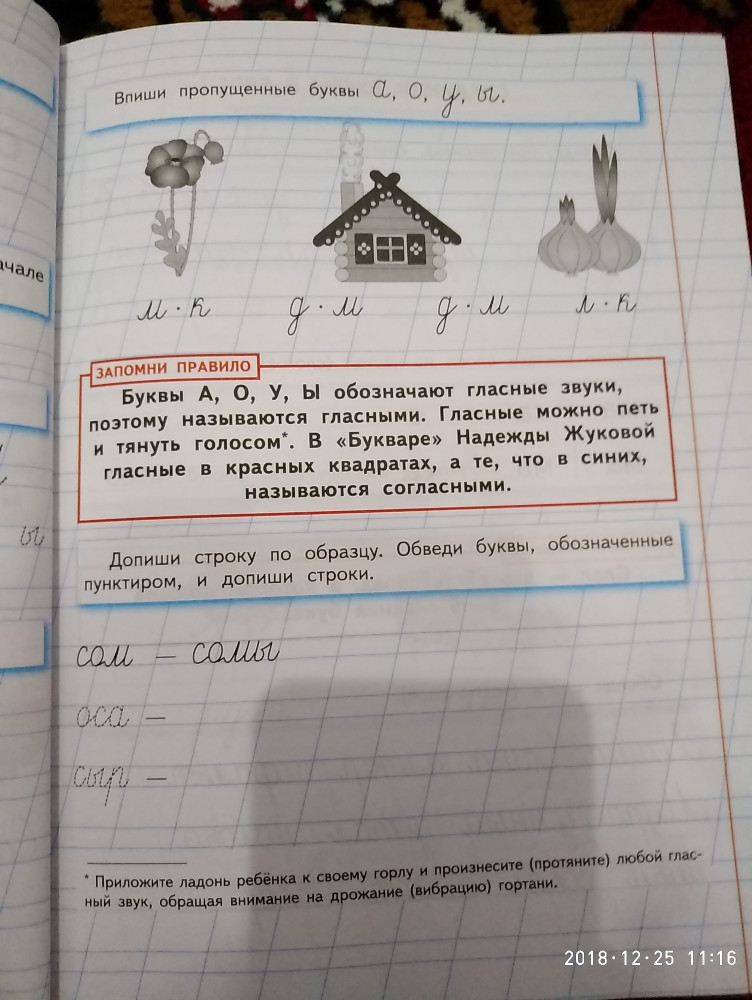 Впиши пропущенные буквы а, о, у, ы.
м · к д · м д · м л · к
ЗАПОМНИ ПРАВИЛО
Буквы А, О, У, Ы обозначают гласные звуки,
поэтому называются гласными. Гласные можно петь
и тянуть голосом*. В «Букваре» Надежды Жуковой
гласные в красных квадратах, а те, что в синих,
называются согласными.
ачале
ы
Допиши строку по образцу. Обведи буквы, обозначенные
пунктиром, и допиши строки.
сом — сомы
оса —
сыр —
* Приложите ладонь ребёнка к своему горлу и произнесите (протяните) любой глас-
ный звук, обращая внимание на дрожание (вибрацию) гортани.
2018·12·25 11:16